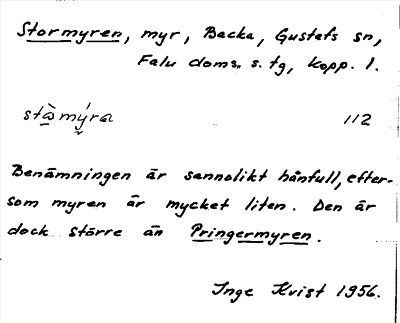 Stormyren, myr, Backa, Gustafs sn,
Falu doms. s. tg, kopp. l.
112
Benämningen är sannolikt hånfull, efter-
som myren är mycket liten. Den är
dock större än Pringermyren.
Inge Kvist 1956.